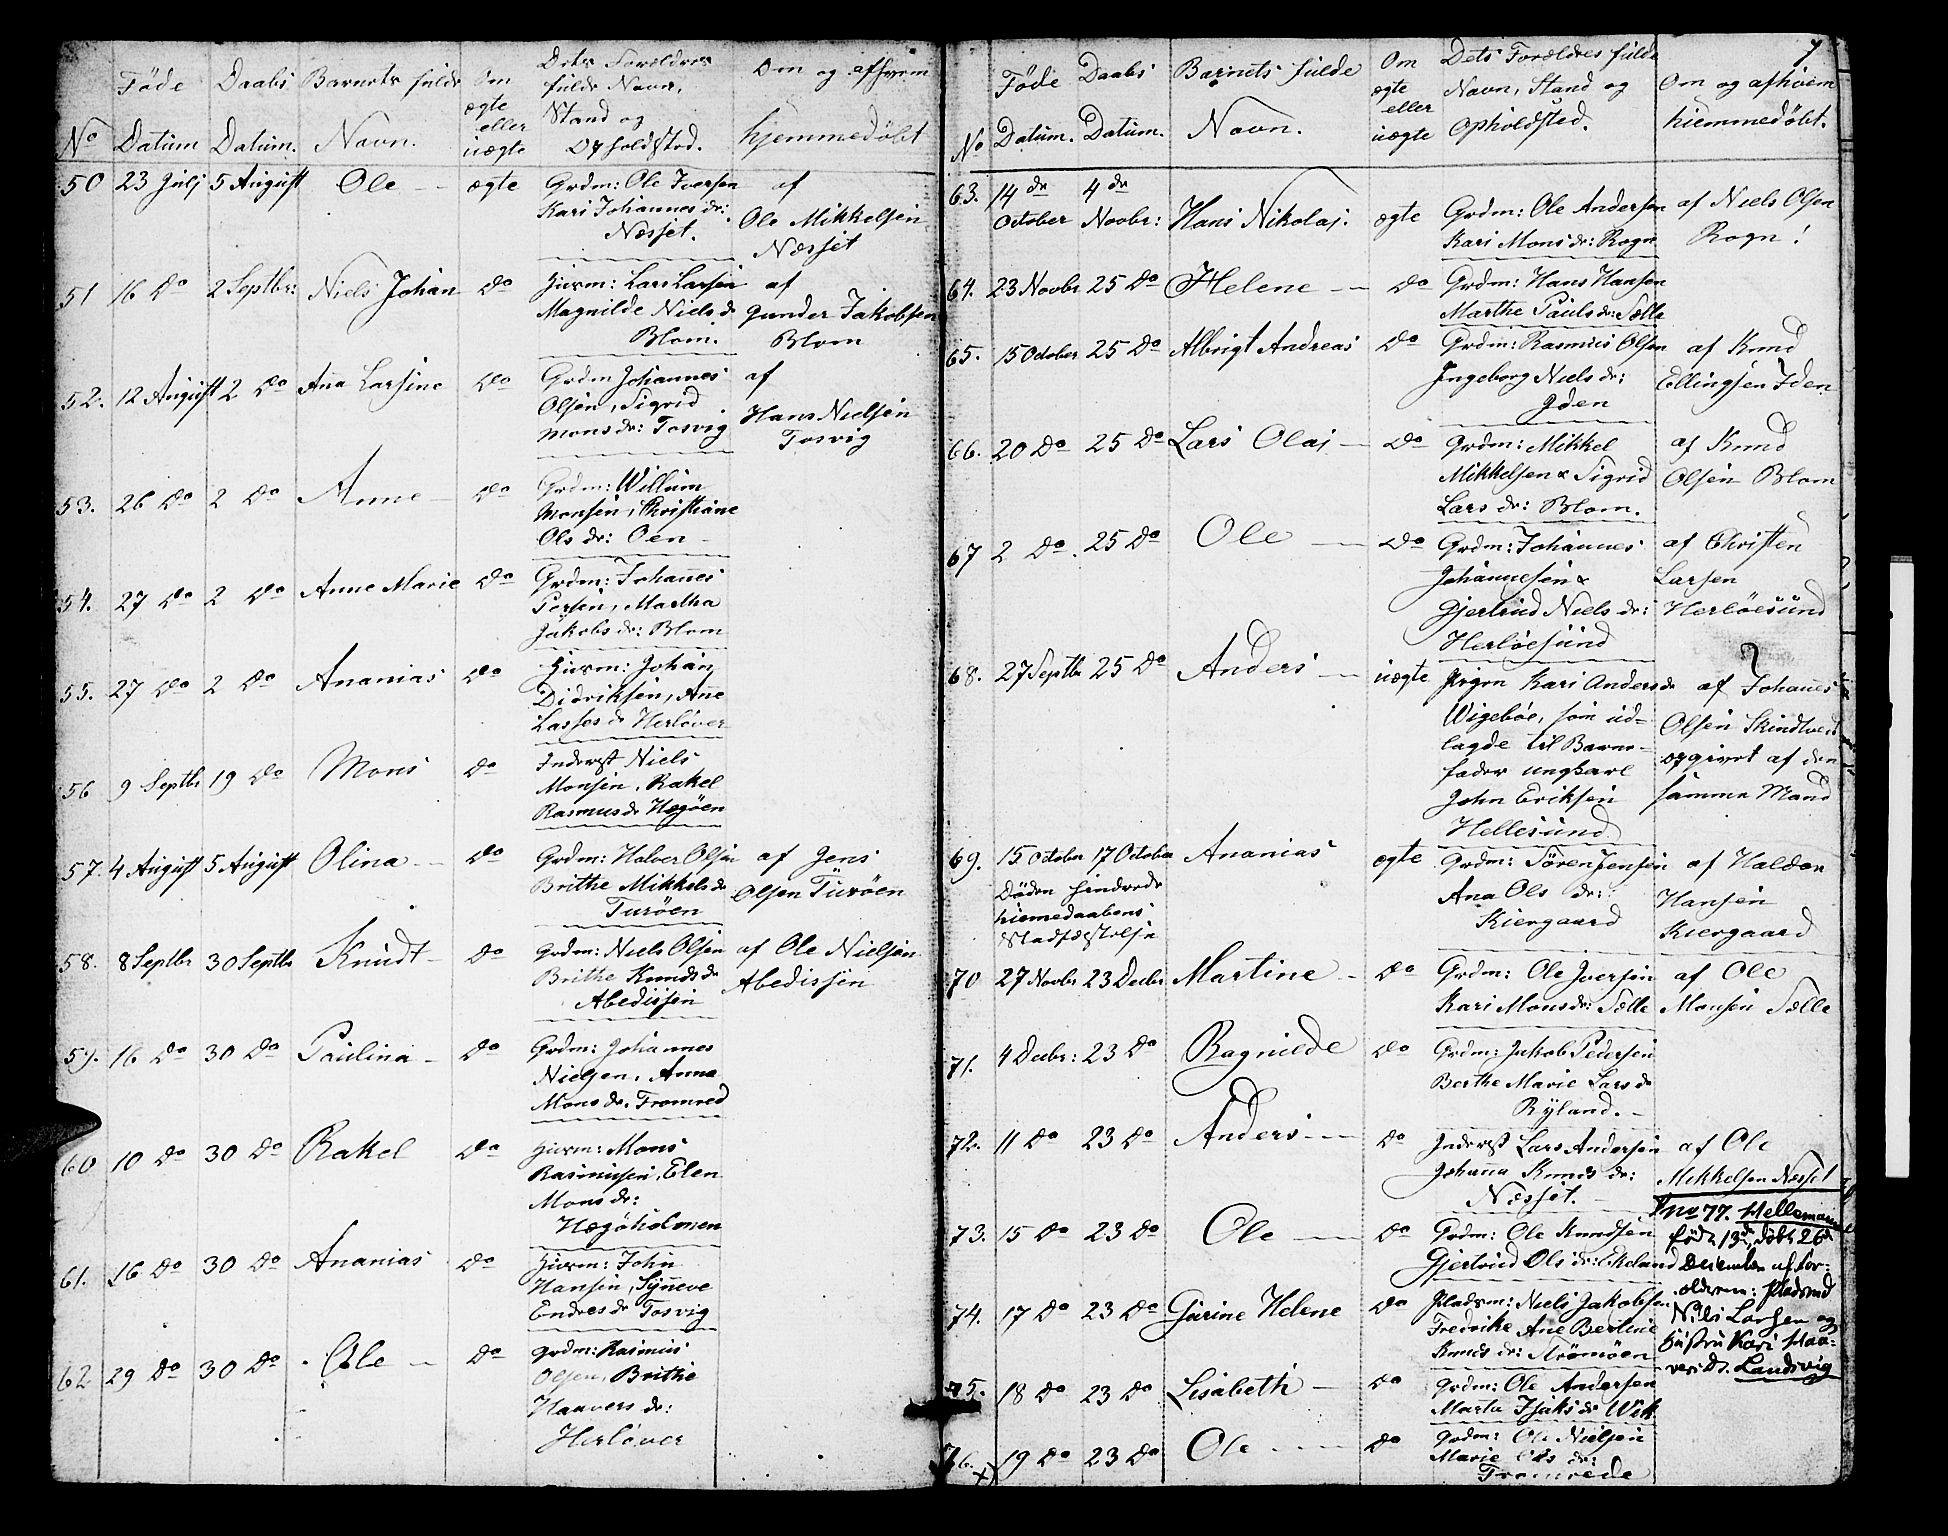 Føde Daabs Barnets fulde Om Dets Forældres Om og afhvem
ægte fulde Navn,
eller Stand og
No Datum Datum. Navn. uægte Opholdsted. hjemmedøbt
50 23 Julj 5 August Ole ægte Grdm: Ole Iversen af
Kari Johannes dr: Ole Mikkelsen
Næsset. Næsset
51 16 Do 2 Septbr: Niels Johan Do Huusm: Lars Larsen af
Magnilde Niels dr Gunder Jakobsen
Blom. Blom
52. 12 August 2 Do Ana Larsine Do Grdm Johannes af
Olsen, Sigrid Hans Nielsen
Mons dr: Tosvig Tosvig
53. 26 Do 2 Do Anne Do Grdm: Willum
Monsen, Christiane
Ols dr: Oen
54. 27 Do 2 Do Anne Marie Do Grdm: Johanes
Persen, Martha
Jakobs dr: Blom
55. 27 Do 2 Do Ananias Do Huusm: Johan
Didriksen, Ane
Lasses dr Herløver
56 9 Septbr 19 Do Mons Do Inderst Niels
Monsen, Rakel
Rasmus dr Hægøen
57. 4 August 5 August Olina Do Grdm: Halver Olsen af Jens
Brithe Mikkels dr Olsen Turøen
Turøen
58. 8 Septbr 30 Septbr Knudt Do Grdm: Niels Olsen af Ole Nielsen
Brithe Knuds dr Abedissen
Abedissen
59. 16 Do 30 Do Paulina Do Grdm: Johannes
Nielsen, Anna
Mons dr: Tromred
60 10 Do 30 Do Rakel Do Huusm: Mons
Rasmusen, Elen
Mons dr:
Hægøholmen
61. 16 Do 30 Do Ananias Do Huusm: John
Hansen, Syneve
Endres dr Tosvig
62 29 Do 30 Do Ole Do Grdm: Rasmus
Olsen, Brithe
Haavers dr:
Herløver
7
Føde Daabs Barnets fulde Om Dets Forældres fulde Om og afhvem
ægte Navn, Stand og
eller
No Datum. Datum. Navn. uægte Opholdsted. hiemmedøbt.
63. 14de 4de
October Novbr: Hans Nikolaj. ægte Grdm: Ole Andersen af Niels Olsen
Kari Mons dr: Rogn Rogn!
64. 23 Novbr 25 Do Helene Do Grdm: Hans Hansen
Marthe Pauls dr: Sælle
65. 15 October 25 Do Albrigt Andreas Do Grdm: Rasmus Olsen af Knud
Ingeborg Niels dr: Ellingsen Iden
Iden
66. 20 Do 25 Do Lars Olai Do Grdm: Mikkel af Knud
Mikkelsen & Sigrid Olsen Blom
Lars dr: Blom.
67 2 Do. 25 Do Ole Do Grdm: Johannes af Christen
Johannesen & Larsen
Gjertrud Niels dr: Herløesund
Herløesund
68. 27 Septbr 25 Do Anders uægte Pigen Kari Anders dr af Johanes
Wigebøe, som ud- Olsen Skindtved
lagde til Barne- opgivet af den
fader ungkarl samme Mand
John Eriksen
Hellesund
69. 15 October 17 October Ananias ægte Grdm: Søren Jensen af Haldor
Døden hindrede Ana Ols dr: Hansen
hiemedaabens Kiergaard Kiergaard
Stadfæstelse
70 27 Novbr 23 Decbr Martine Do Grdm: Ole Iversen af Ole
Kari Mons dr: Sælle Monsen Sælle
71. 4 Decbr: 23 Do Ragnilde Do Grdm: Jakob Pedersen
Berthe Marie Lars dr
Ryland.
72. 11 Do 23 Do Anders Do Inderst Lars Andersen af Ole
Johanna Knuds dr: Mikkelsen Næsset
Næsset.
73. 15 Do 23 Do Ole Do Grdm: Ole Knudsen
Gjertrud Ols dr: Ekeland
74. 17 Do 23 Do Gurine Helene Do Pladsm: Niels Jakobsen
Fredrike Ane Bertine
Knuds dr: Strømøen
75. 18 Do 23 Do Lisabeth Do Grdm: Ole Andersen
Marta Isaks dr Wik
76. 19 Do 23 Do Ole Do Grdm: Ole Nielsen
x) Marie Ols dr:
Tromrede
no 77.
født 13de, døbt 26de
December af for-
ældrene: Pladsmd
Nils Larsen og
hustru Kari Haa-
versdr. Landsvig